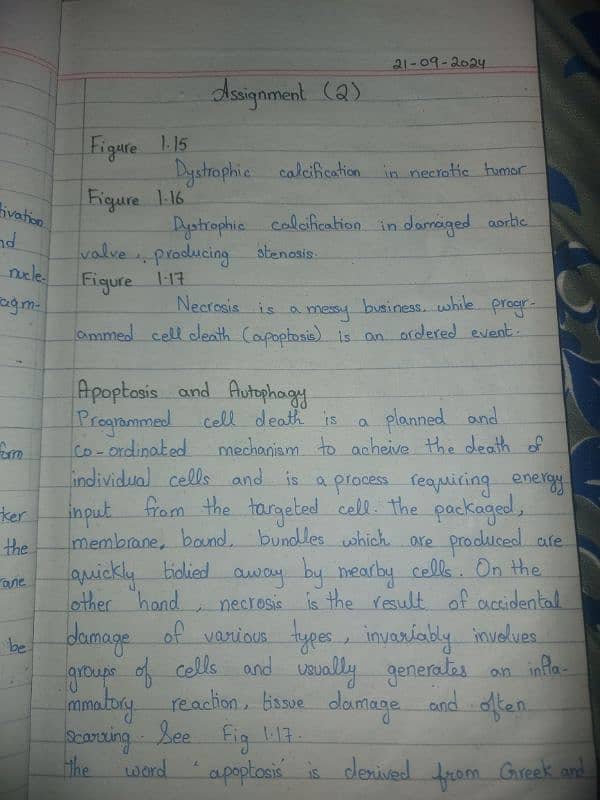 21-09-2024
Assignment (2)
Figure 1.15
Dystrophic calcification in necrotic tumor
Figure 1.16
Dystrophic calcification in damaged aortic
valve, producing stenosis.
Figure 1.17
Necrosis is a messy business, while progr-
ammed cell death (apoptosis) is an ordered event.
Apoptosis and Autophagy
Programmed cell death is a planned and
co-ordinated mechanism to acheive the death of
individual cells and is a process requiring energy
input from the targeted cell. The packaged,
membrane, bound, bundles which are produced are
quickly tidied away by nearby cells. On the
other hand, necrosis is the result of accidental
damage of various types, invariably involves
groups of cells and usually generates an infla-
mmatory reaction, tissue damage and often
scarring. See Fig 1.17.
the word 'apoptosis' is derived from Greek and
tivation
nd
nucle-
agm-
form
ker
the
rane
be